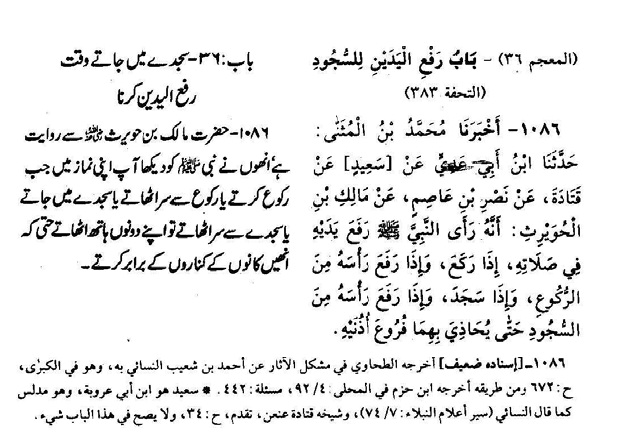 (المعجم ٣٦) - بَابُ رَفْعِ الْيَدَيْنِ لِلسُّجُودِ
(التحفة ٣٨٣)
١٠٨٦- أَخْبَرَنَا مُحَمَّدُ بْنُ الْمُثَنَّى:
حَدَّثَنَا ابْنُ أَبِي عَنْ [سَعِيدٍ] عَنْ
قَتَادَةَ، عَنْ نَصْرِ بْنِ عَاصِمٍ، عَنْ مَالِكِ بْنِ
الْحُوَيْرِثِ: أَنَّهُ رَأَى النَّبِيَّ ﷺ رَفَعَ يَدَيْهِ
فِي صَلَاتِهِ، إِذَا رَكَعَ، وَإِذَا رَفَعَ رَأْسَهُ مِنَ
الرُّكُوعِ، وَإِذَا سَجَدَ، وَإِذَا رَفَعَ رَأْسَهُ مِنَ
السُّجُودِ حَتَّى يُحَاذِيَ بِهِمَا فُرُوعَ أُذُنَيْهِ.
باب: ٣٦- سجدے میں جاتے وقت
رفع الیدین کرنا
١٠٨٦- حضرت مالک بن حویرث رضی اللہ عنہ سے روایت
ہے، انھوں نے نبی ﷺ کو دیکھا آپ اپنی نماز میں جب
رکوع کرتے یا رکوع سے سر اٹھاتے یا سجدے میں جاتے
یا سجدے سے سر اٹھاتے تو اپنے دونوں ہاتھ اٹھاتے حتی کہ
انھیں کانوں کے کناروں کے برابر کرتے۔
١٠٨٦- [إسناده ضعيف] أخرجه الطحاوي في مشكل الآثار عن أحمد بن شعيب النسائي به، وهو في الكبرى،
ح: ٦٧٢ ومن طريقه أخرجه ابن حزم في المحلى: ٩٢/٤، مسئلة: ٤٤٢. * سعيد هو ابن أبي عروبة، وهو مدلس
كما قال النسائي (سير أعلام النبلاء: ٧٤/٧)، وشيخه قتادة عنعن، تقدم، ح: ٣٤، ولا يصح في هذا الباب شيء.